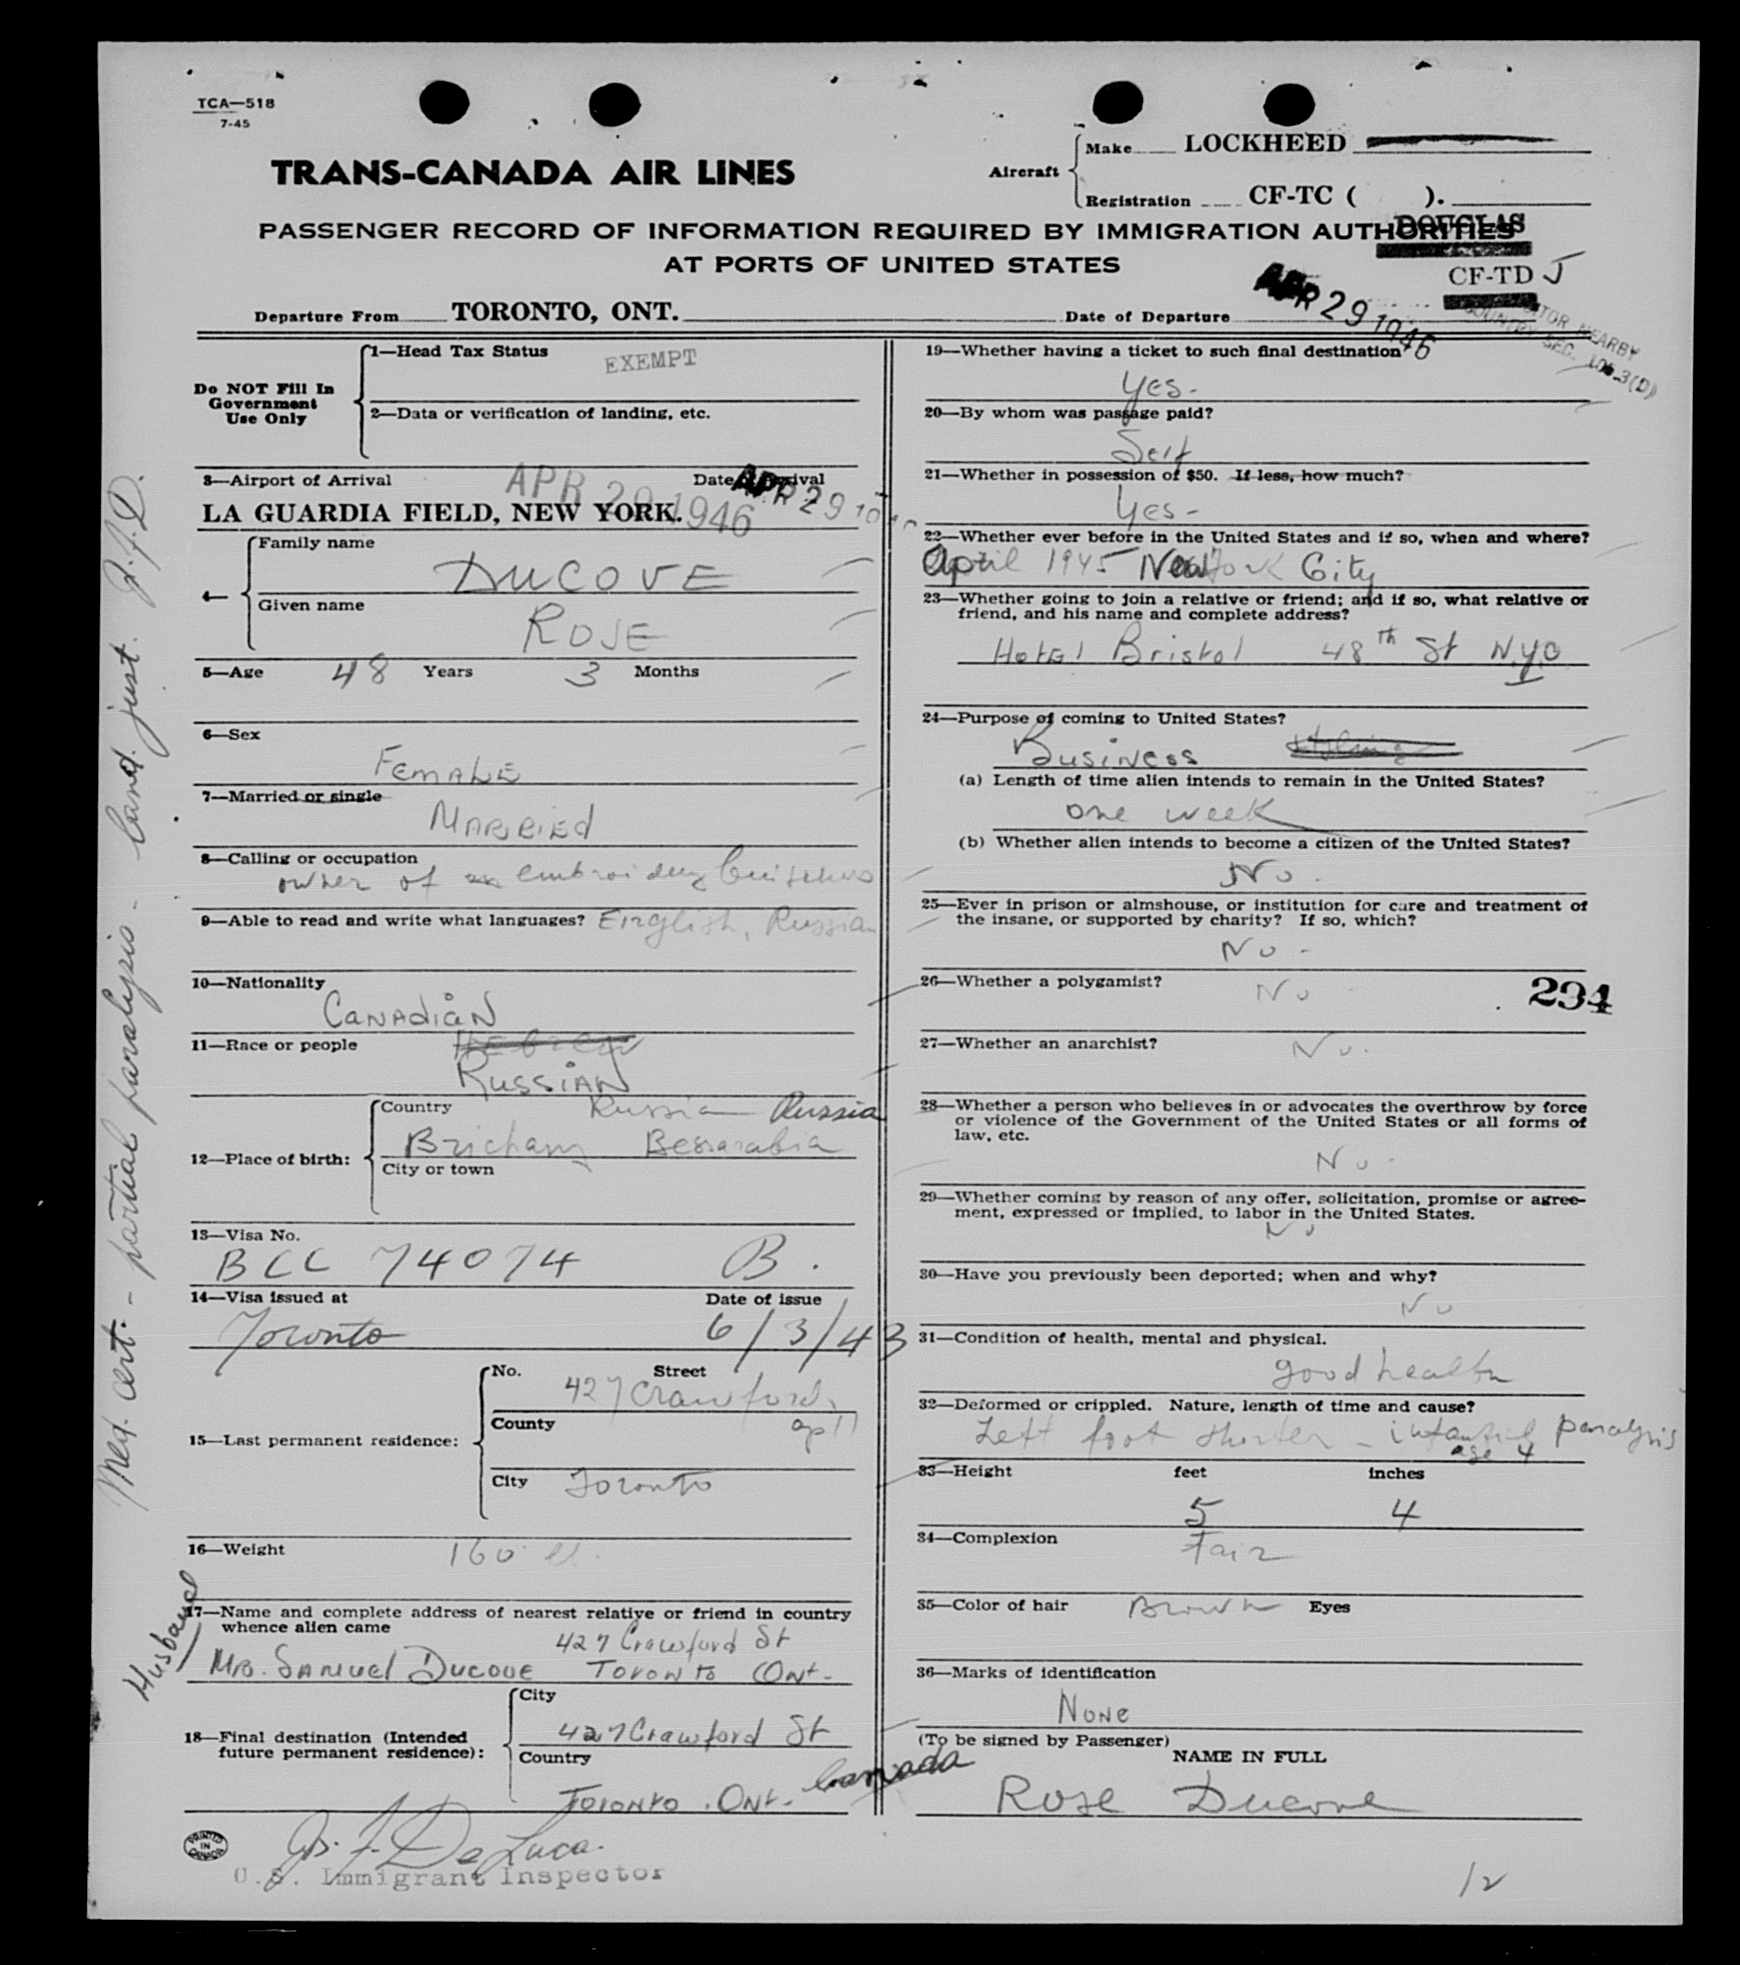 TCA—518
7-45
TRANS-CANADA AIR LINES
Aircraft
Make LOCKHEED
Registration CF-TC ( ).
PASSENGER RECORD OF INFORMATION REQUIRED BY IMMIGRATION AUTHORITIES
DOUGLAS
AT PORTS OF UNITED STATES
CF-TD J
Departure From TORONTO, ONT. Date of Departure APR 29 1946
NEARBY
COUNTRY SEC.
Do NOT Fill In
Government
Use Only
1—Head Tax Status EXEMPT
2—Data or verification of landing, etc.
3—Airport of Arrival Date of Arrival
APR 29 1946 APR 29 1946
LA GUARDIA FIELD, NEW YORK.
4—
Family name
DUCOVE
Given name
ROSE
5—Age 48 Years 3 Months
6—Sex
FEMALE
7—Married or single
MARRIED
8—Calling or occupation
owner of an embroidery business
9—Able to read and write what languages? English, Russian
10—Nationality
CANADIAN
11—Race or people Hebrew
RUSSIAN
12—Place of birth:
Country Russia Russia
Brichany Bessarabia
City or town
13—Visa No.
BCC 74074 B.
14—Visa issued at Date of issue
Toronto 6/3/43
15—Last permanent residence:
No. Street
427 Crawford
County apt
City Toronto
16—Weight 160
17—Name and complete address of nearest relative or friend in country
whence alien came
427 Crawford St
Husband
MR. SAMUEL DUCOVE TORONTO ONT.
18—Final destination (Intended
future permanent residence):
City
427 Crawford St
Country
TORONTO. ONT. Canada
PRINTED
IN
CANADA
J. F. De Luca.
U.S. Immigrant Inspector
Med. cert. - partial paralysis - land. just. J.F.D.
19—Whether having a ticket to such final destination
Yes-
20—By whom was passage paid?
Self
21—Whether in possession of $50. If less, how much?
Yes-
22—Whether ever before in the United States and if so, when and where?
April 1945 New York City
23—Whether going to join a relative or friend; and if so, what relative or
friend, and his name and complete address?
Hotel Bristol 48th St N.Y.C
24—Purpose of coming to United States?
BUSINESS
(a) Length of time alien intends to remain in the United States?
one week
(b) Whether alien intends to become a citizen of the United States?
No.
25—Ever in prison or almshouse, or institution for care and treatment of
the insane, or supported by charity? If so, which?
No -
26—Whether a polygamist? No
294
27—Whether an anarchist? No.
28—Whether a person who believes in or advocates the overthrow by force
or violence of the Government of the United States or all forms of
law, etc.
No -
29—Whether coming by reason of any offer, solicitation, promise or agree-
ment, expressed or implied, to labor in the United States.
No
30—Have you previously been deported; when and why?
No
31—Condition of health, mental and physical.
good health
32—Deformed or crippled. Nature, length of time and cause?
Left foot shorter - infantile paralysis
age 4
33—Height feet inches
5 4
34—Complexion
Fair
35—Color of hair Brown Eyes
36—Marks of identification
NONE
(To be signed by Passenger)
NAME IN FULL
Rose Ducove
12